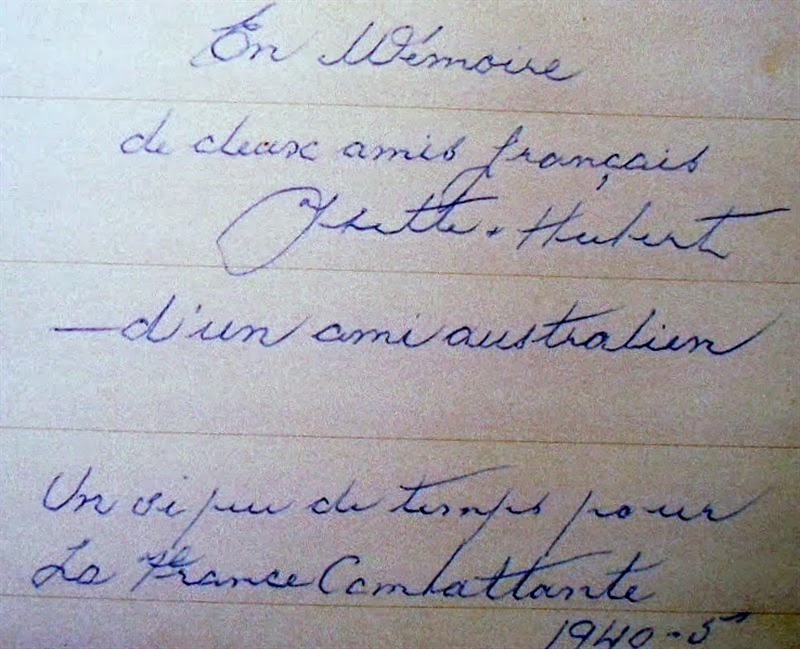 En Mémoire
de deux amis français
+ Hubert
—d'un ami australien
Un si peu de temps pour
La France Combattante
1940-5